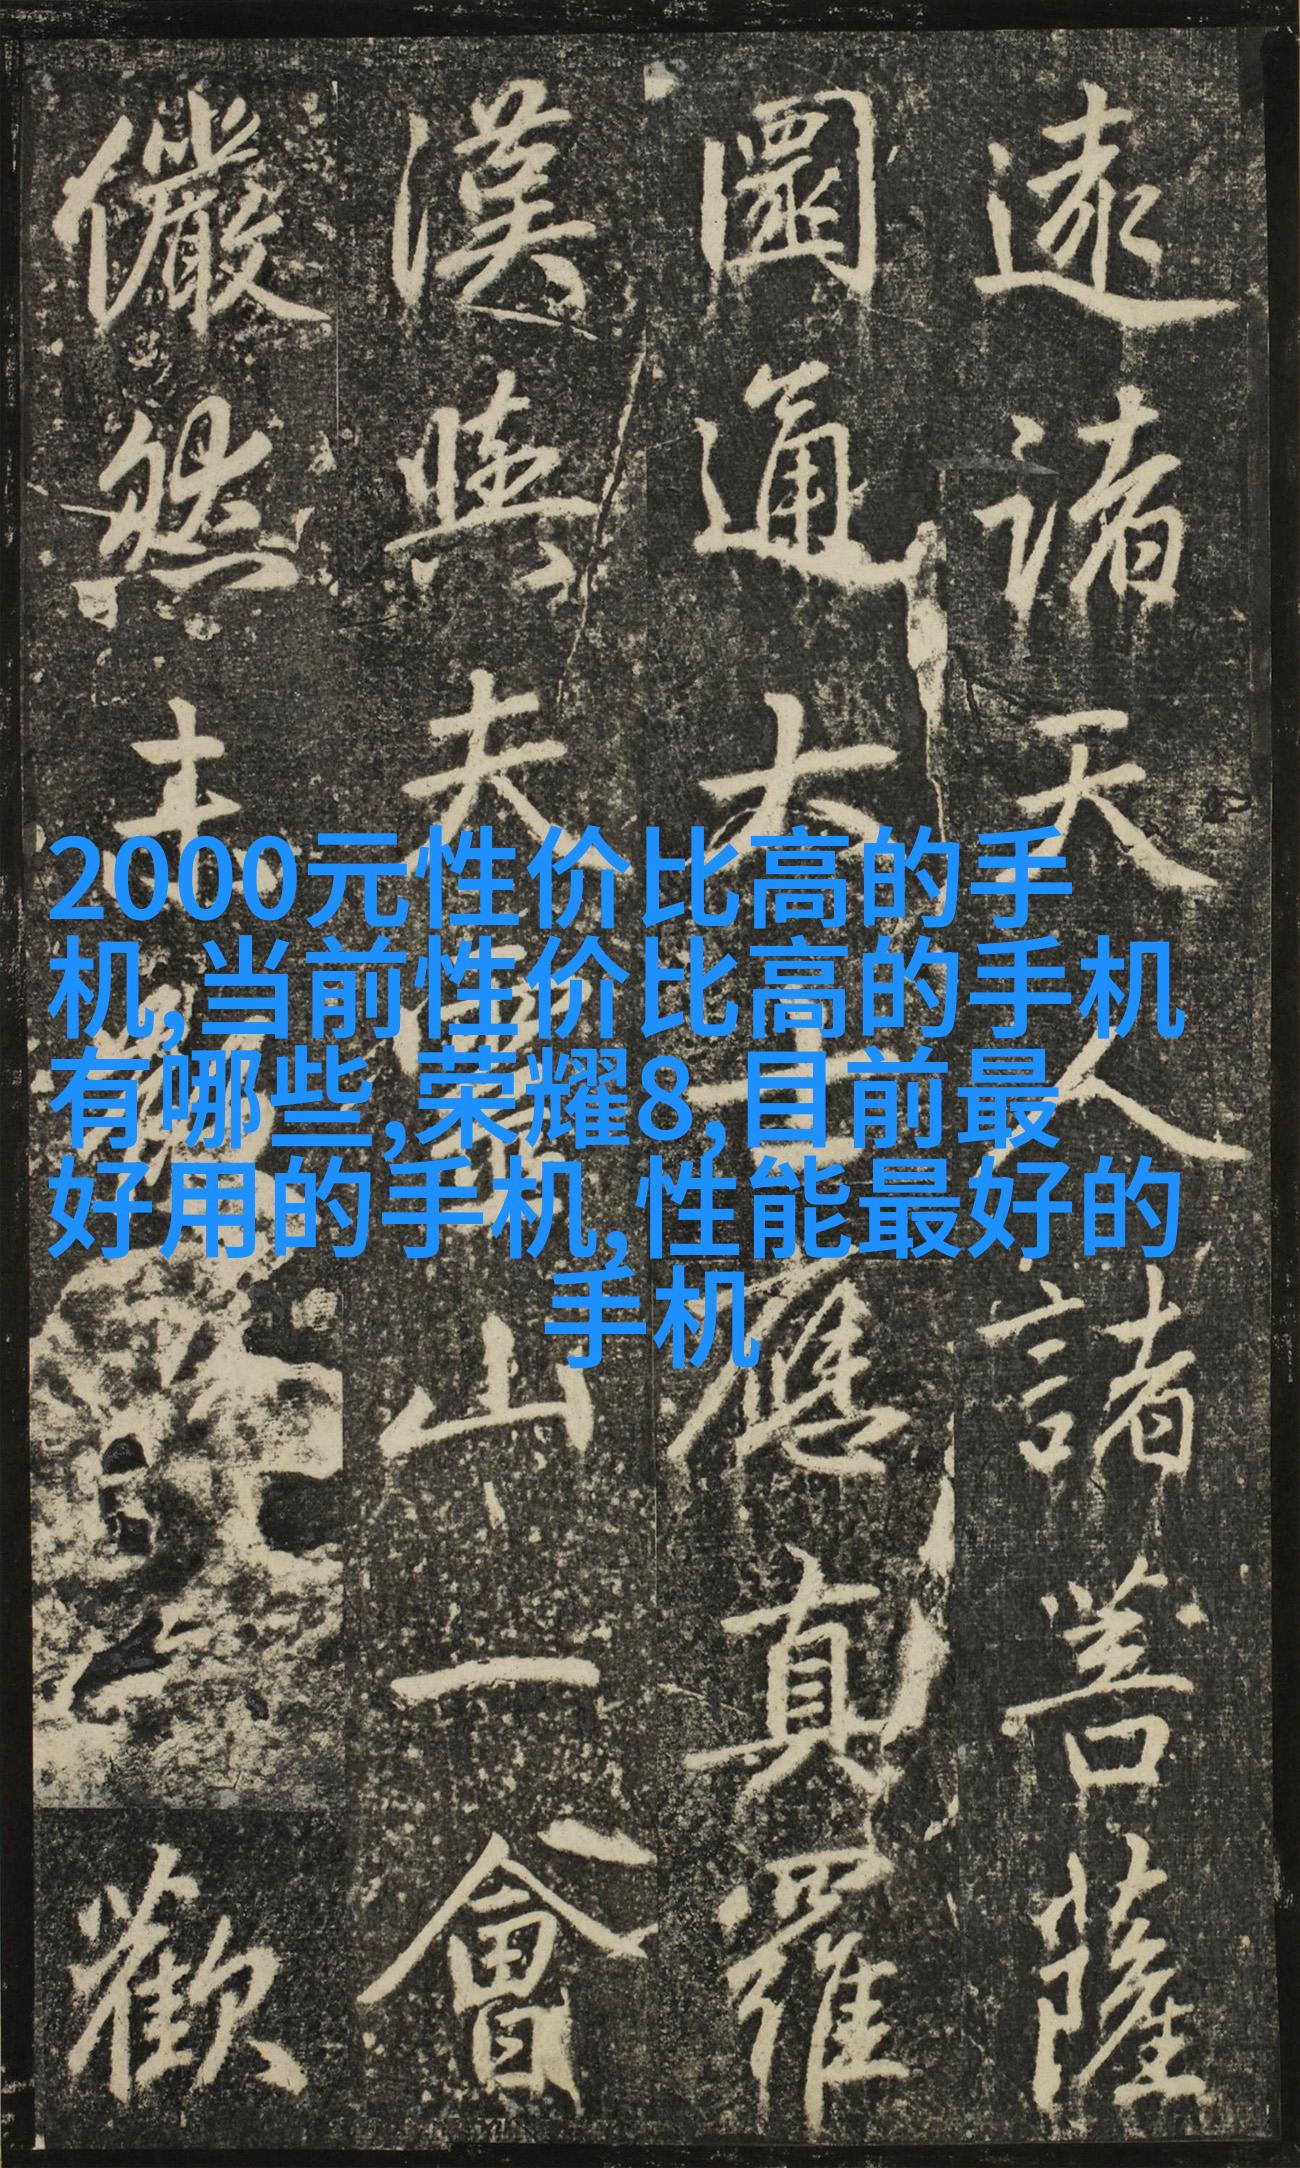 2000元性价比高的手
机,当前性价比高的手机
有哪些,荣耀8,目前最
好用的手机,性能最好的
手机
遠諸天人諸菩薩
圓通大士應真羅
漢與夫山一會
儼然歡